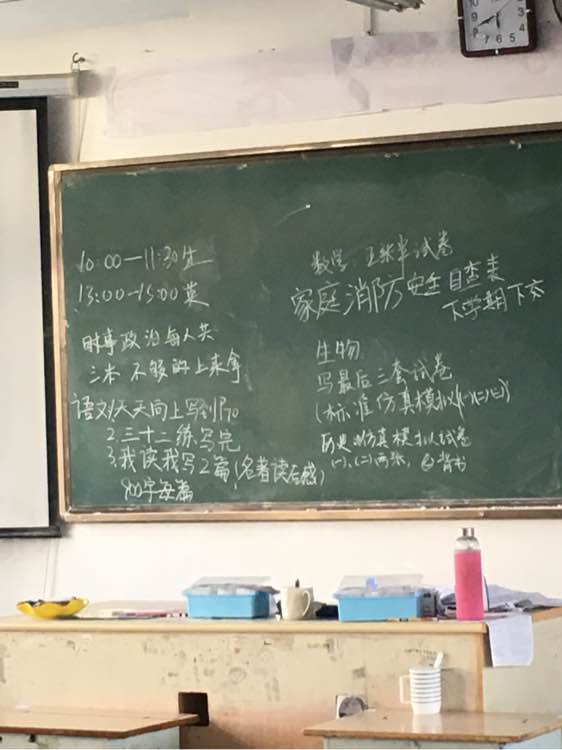 10:00—11:30生
13:00—15:00英
时事政治每人共
三本 不够的上来拿
语文1天天向上写到P70
2.三十二练写完
3.我读我写2篇(名著读后感)
800字每篇
数学 五张半试卷
家庭消防安全自查表
下学期下交
生物
写最后三套试卷
(标准仿真模拟(一)(二)(三))
历史 仿真模拟试卷
(一)、(二)两张, ②背书